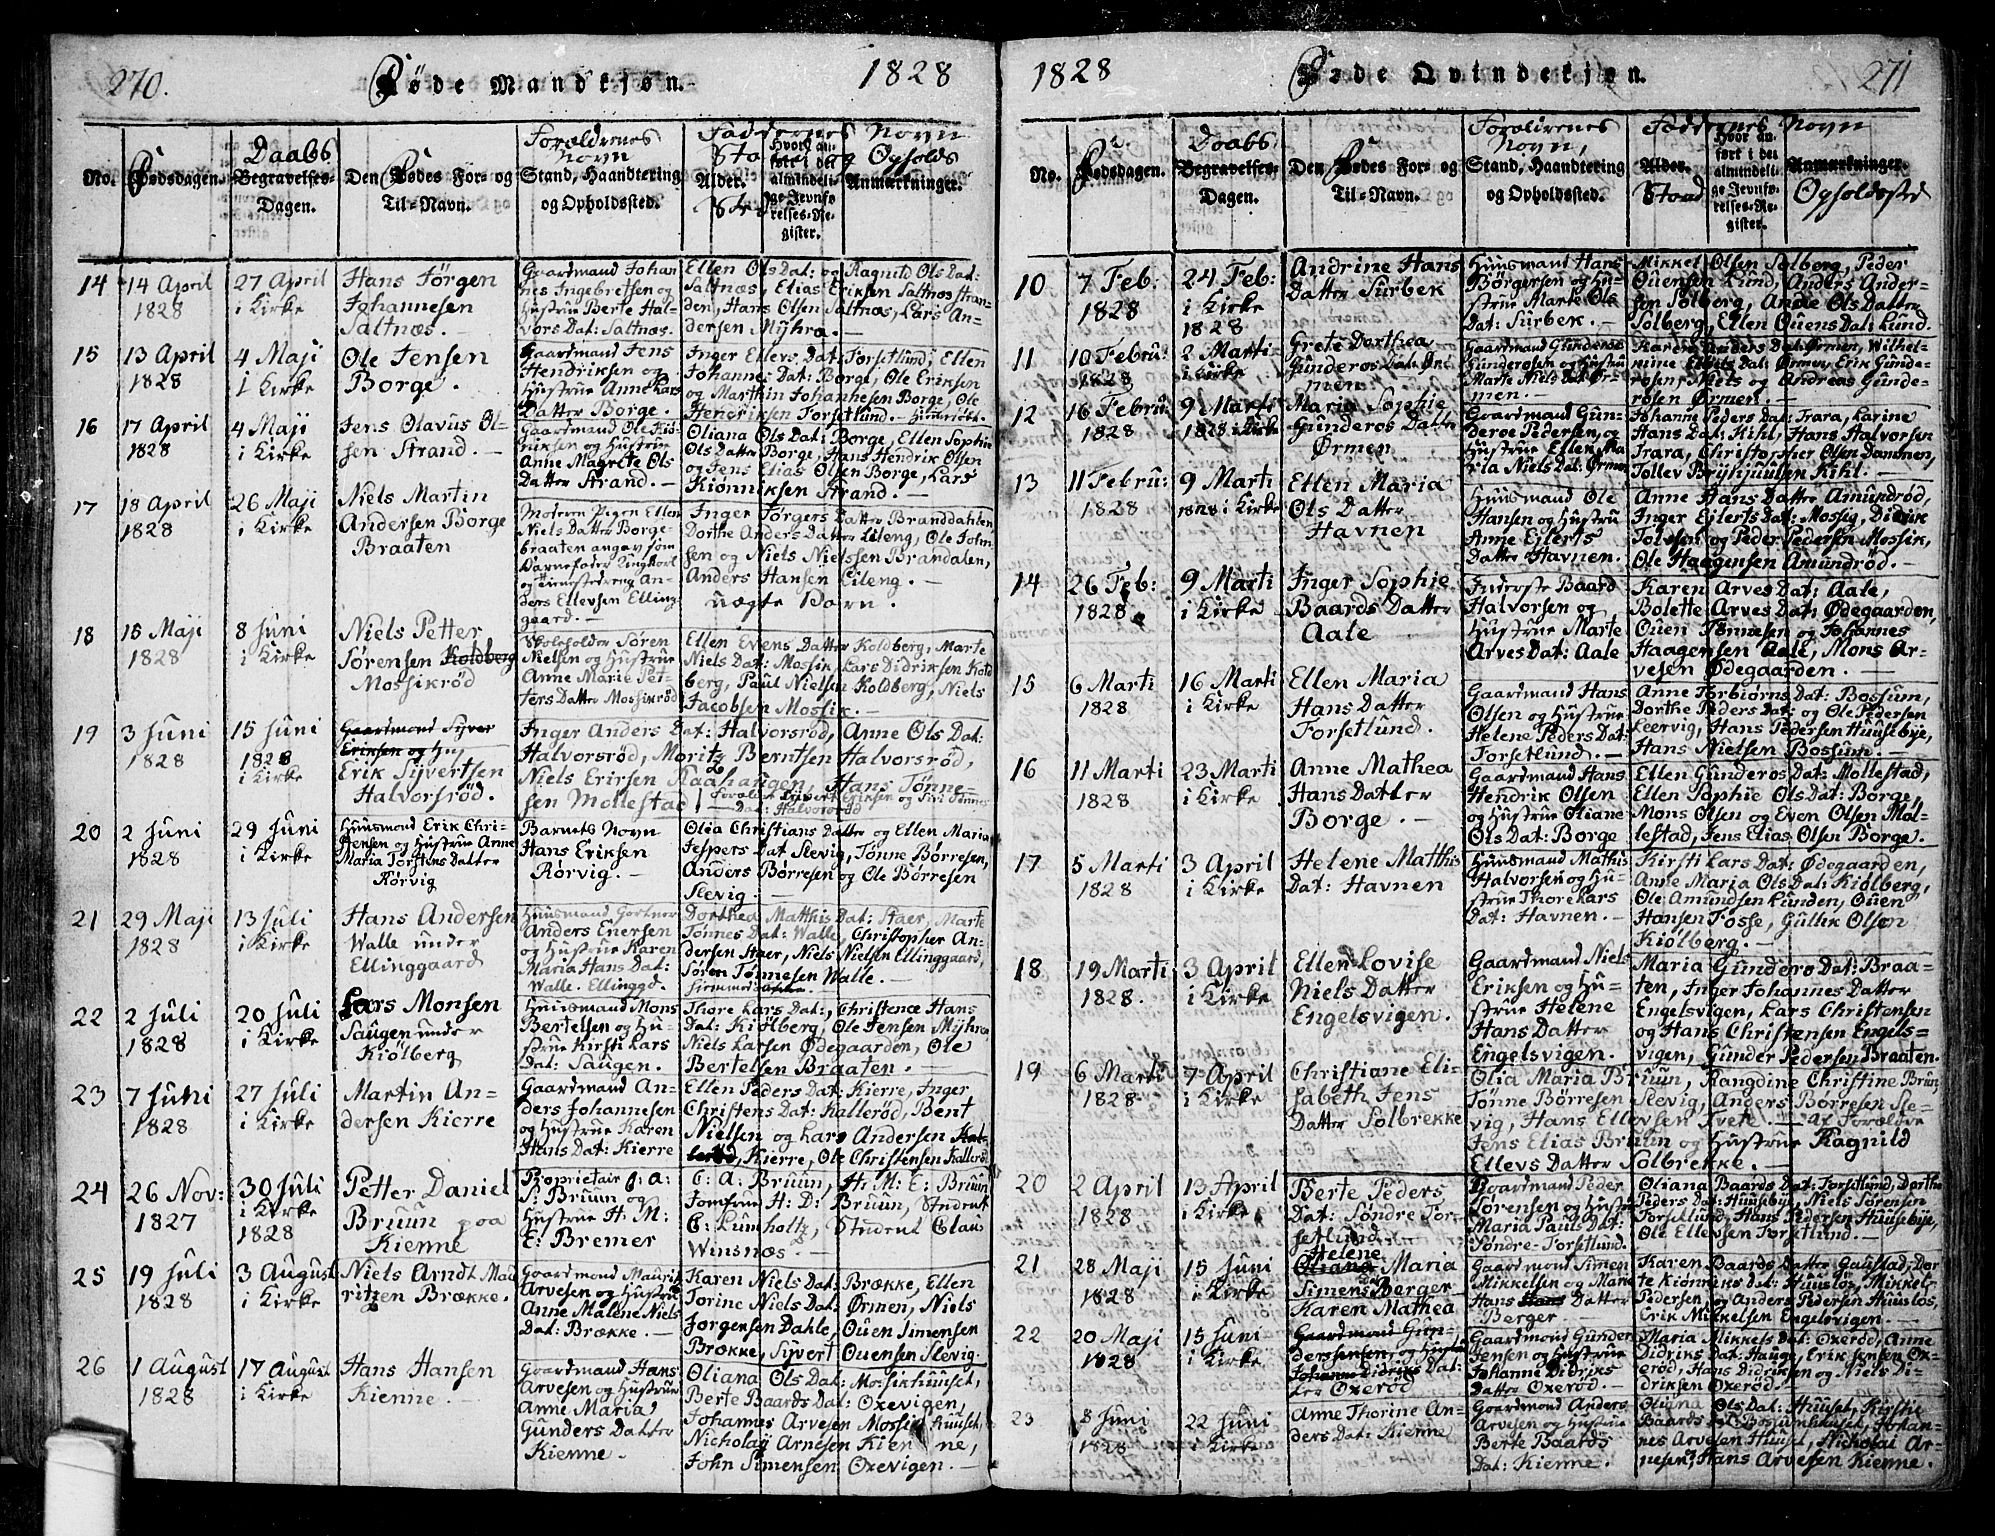 270.
Føde Mandkjøn.
1828
No.
Fødsdagen.
Daabs
Begravelses-
Dagen.
Den Fødes For- og
Til-Navn.
Forældrenes
Navn
Stand, Haandtering
og Opholdssted.
Faddernes Navn
Alder.
Hvor an-
ført i det
almindeli-
ge Jevnfø-
relses-Re-
gister.
Opholds
Anmærkninger.
14
14 April
1828
27 April
i Kirke
Hans Jörgen
Johannesen
Saltnæs.
Gaardmand Johan
nes Ingebretsen og
Hustrue Berte Hal-
vors Dat: Saltnæs.
Ellen Ols Dat: og Ragnild Ols Dat:
Saltnæs, Elias Eriksen Saltnæs stran-
den, Hans Olsen Saltnæs, Lars An-
dersen Mÿhra.
15
13 April
1828
4 Maji
i Kirke
Ole Jensen
Borge.
Gaardmand Jens
Hendriksen og
Hustrue Anne Lars
Datter Borge.
Inger Ellevs Dat: Forsetlund, Ellen
Johannes Dat: Borge, Ole Eriksen
og Marthin Johannesen Borge, Ole
Henriksen Forsetlund.
16
17 April
1828
4 Maji
i Kirke
Jens Olavus Ol-
sen Strand.
Gaardmand Ole Kiö-
niksen og Hustrue
Anne Magrete Ols
Datter Strand.
Oliana Ols Dat: Borge, Ellen Sophie
Ols Datter Borge, Hans Hendrik Olsen
og Jens Elias Olsen Borge, Lars
Kiönniksen Strand.
17
18 April
1828
26 Maji
i Kirke
Niels Martin
Andersen Borge
Braaten
Moderen Pigen Ellen
Niels Datter Borge-
braaten angav som
Barnefader Ungkarl
og Tienestedreng An-
ders Ellevsen Elling-
gaard.
Inger Jörgers Datter Branddahlen
Dorthe Anders Datter Lileng, Ole John-
sen og Niels Nielssen Brandalen,
Anders Hansen Lileng.
uægte Barn.
18
15 Maji
1828
8 Juni
i Kirke
Niels Petter
Sørensen Koldberg
Mossikröd
Skoleholder Sören
Nielsen og Hustrue
Anne Marie Pet-
ters Datter Mossikröd
Ellen Evens Datter Koldberg, Marte
Niels Dat: Mossik, Lars Didriksen Kold
berg, Paul Nielsen Koldberg, Niels
Jacobsen Mossik.
19
3 Juni
1828
15 Juni
1828
i Kirke
Gaardmand Syver
Eriksen og Hus
Erik Sÿvertsen
Halvorsröd.
Inger Anders Dat: Halvorsröd, Anne Ols Dat:
Halvorsröd, Moritz Berntsen Halvorsröd,
Niels Erirsen Kaahaugen, Hans Tönne-
sen Mollestad
Forældre Syvert Eriksen og Siri Tønnes
Dat: Halvorsröd
20
2 Juni
1828
29 Juni
i Kirke
Huusmand Erik Chri-
stensen og Hustrue Anne
Maria Torstens Datter
Rörvig
Barnets Navn
Hans Eriksen
Rörvig.
Olea Christians Datter og Ellen Maria
Jespers Dat Slevig, Tönne Börresen,
Anders Börresen og Ole Börresen
Slevig
21
29 Maji
1828
13 Juli
i Kirke
Hans Andersen
Walle under
Ellinggaard
Huusmand Gartner
Anders Enersen
og Hustrue Karen
Maria Hans Dat:
Walle. Ellinggd.
Dorthea Matthis Dat: Staer, Marte
Tönnes Dat: Walle, Christopher An-
dersen Staer, Niels Nielsen Ellinggaard,
Sören Tönnesen Walle.
22
2 Juli
1828
20 Juli
i Kirke
Lars Monsen
Saugen under
Kiölberg
Huusmand Mons
Bertelsen og Hu-
strue Kirsti Lars
Dat: Saugen.
Thore Lars Dat:, Christence Hans
Dat: Kiölberg, Ole Jensen Mÿhra,
Niels Larsen Ødegaarden, Ole
Bertelsen Braaten.
23
7 Juni
1828
27 Juli
i Kirke
Martin An-
dersen Kierre
Gaardmand An-
ders Johannesen
og Hustrue Karen
Hans Dat: Kierre
Ellen Peders Dat: Kierre, Inger
Christens Dat: Kalleröd, Bent
Nielsen og Lars Andersen Kal-
leröd, Kierre, Ole Christensen Kalleröd
24
26 Nov:
1827
30 Juli
i Kirke
1828
Petter Daniel
Bruun paa
Kienne
Proprietair J: A:
S: Bruun og
Hustrue H: M:
E: Bremer
C: A: Bruun, H: M: E: Bruun,
Jomfrue H: D: Bruun, Student
C: Lumholtz, Student Claus
Winsnæs.
25
19 Juli
1828
3 August
i Kirke
Niels Arndt Mau
ritzen Brække.
Gaardmand Maurits
Arvesen og Hustrue
Anne Malene Niels
Dat: Brække.
Karen Niels Dat: Brække, Ellen
Torine Niels Dat: Ørmen, Niels
Jorgensen Dahle, Ouen Simensen
Brække, Sÿvert Ouensen Slevig.
26
1 August
1828
17 August
i Kirke
Hans Hansen
Kienne.
Gaardmand Hans
Arvesen og Hustrue
Anne Maria
Gunders Datter
Kienne.
Oliana Ols Dat: Mossikhuuset,
Berte Baards Dat: Oxevigen,
Johannes Arvesen Mossik Huuset,
Nicholaÿ Arnesen Kienne,
John Simensen Oxevigen.
1828
Føde Qvindekjøn.
271
No.
Fødsdagen.
Daabs
Begravelses-
Dagen.
Den Fødes For- og
Til-Navn.
Forældrenes
Navn,
Stand, Haandtering
og Opholdssted.
Faddernes Navn
Alder.
Stand
Hvor an-
ført i det
almindeli-
ge Jevnfø-
relses-Re-
gister.
Anmærkninger.
Opholdssted
10
7 Feb:
1828
24 Feb:
i Kirke
1828
Andrine Hans
Datter Surbek
Huusmand Hans
Börgersen og Hu-
strue Marte Ols
Dat: Surbek.
Mikkel Olsen Solberg, Peder
Ouensen Lund, Anders Ander-
sen Solberg, Andie Ols Datter
Solberg, Ellen Ouens Dat: Lund.
11
10 Febru:
1828
2 Marti
i Kirke
Grete Dorthea
Gunderos Dat: Ør-
men.
Gaardmand Gunderos
Gunderosen og Hustrue
Marte Niels Dat Ør-
men.
Karen Anders Dat: Ørmen, Wilhel-
mine Ellefs Dat: Ørmen, Erik Gunde-
rosen, Niels og Andreas Gunde-
rosen Ørmen.
12
16 Febru:
1828
9 Marti
1828 i Kirke
Maria Sophie
Gunderos Datter
Ørmen
Gaardmand Gun-
deroe Pedersen, og
Hustrue Ellen Ma-
ria Niels Dat: Ørmen
Johanne Peders Dat: Trara, Karine
Hans Dat: Kihl, Hans Halvorsen
Trara, Christopher Olsen Dammen,
Tollev Brÿnjuulsen Kihl.
13
11 Febru:
1828
9 Marti
1828 i Kirke
Ellen Maria
Ols Datter
Havnen
Huusmand Ole
Hansen og Hustru
Anne Ejlerts
Datter Havnen.
Anne Hans Datter Amundröd,
Inger Ejlerts Dat: Mossig, Didrik
Tolvsen og Peder Pedersen Mossik,
Ole Haagensen Amundröd.
14
26 Feb:
1828.
9 Marti
i Kirke
Inger Sophie
Baards Datter
Aale
Inderste Baard
Halvorsen og
Hustrue Marte
Arves Dat: Aale
Karen Arves Dat: Aale,
Bolette Arves Dat: Ødegaarden,
Ouen Tønnesen og Johannes
Haagensen Aale, Mons Ar-
vesen Ødegaarden.
15
6 Marti
1828
16 Marti
i Kirke
Ellen Maria
Hans Datter
Forsetlund.
Gaardmand Hans
Olsen og Hustrue
Helene Peders Dat:
Forsetlund.
Anne Torbiörns Dat: Bossum,
Dorthe Peders Dat: og Ole Pedersen
Leervig, Hans Pedersen Huusebÿe,
Hans Nielsen Bossum.
16
11 Marti
1828
23 Marti
i Kirke
Anne Mathea
Hans Datter
Borge.
Gaardmand Hans
Hendrik Olsen
og Hustrue Oliane
Ols Dat: Borge
Ellen Gunderos Dat: Mollestad,
Ellen Sophie Ols Dat: Borge,
Mons Olsen og Even Olsen Mol-
lestad, Jens Elias Olsen Borge.
17
5 Marti
1828
3 April
i Kirke
Helene Matthis
Dat: Havnen
Huusmand Mathis
Halvorsen og Hu-
strue Thore Lars
Dat: Havnen.
Kirsti Lars Dat: Ødegaarden,
Anne Maria Ols Dat: Kiölberg,
Ole Amundsen Lunden, Ouen
Hansen Fosse, Gullik Olsen
Kiölberg.
18
19 Marti
1828.
3 April
i Kirke
Ellen Lovise
Niels Datter
Engelsvigen.
Gaardmand Niels
Eriksen og Hu-
strue Helene
Hans Datter
Engelsvigen.
Maria Gunders Dat: Braa-
ten, Inger Johannes Datter
Engelsvigen, Lars Christensen
og Hans Christensen Engels-
vigen, Gunder Pedersen Braaten.
19
6 Marti
1828
7 April
i Kirke
Christiane Eli-
sabeth Jens
Datter Solbrekke
Olia Maria Bruun, Rangdine Christine Brun,
Tönne Börresen Slevig, Anders Börresen Sle-
vig, Hans Ellevsen Tvete. — Af Forældre
Jens Elias Bruun og Hustrue Ragnild
Ellevs Datter Solbrekke.
20
2 April
1828
13 April
i Kirke
Berte Peders
Dat: Søndre For-
setlund
Gaardmand Peder
Sörensen og Hustrue
Maria Pauls Dat:
Söndre-Forsetlund.
Oliana Baards Dat: Forsetlund, Dorthe
Peders Dat: Huusebye, Niels Sörensen
Forsetlund, Hans Pedersen Huusebÿe,
Ole Ellevsen Forsetlund.
21
28 Maji
1828
15 Juni
i Kirke
Helene
Oliana Maria
Simens Berger
Karen Mathea
Gaardmand Simen
Mikkelsen og Marie
Hans Hans Datter
Berger
Karen Baards Datter Gaustad, Dor
te Kiönniks Dat: Huuslös, Mikkel
Pedersen og Anders Pedersen Huuslös,
Erik Mikkelsen Engelsvigen.
22
20 Maji
1828
15 Juni
i Kirke
Gaardmand Gun-
dersensen, og Hustrue
Johanne Didriks Dat:
ter Oxeröd
Gaardmand Gunder
Jensen og Hustrue
Johanne Didriks
Datter Oxeröd.
Maria Mikkels Dat: Oxeröd, Anne
Didriks Dat: Hauge, Erik Jensen Ox-
eröd, Hans Didriksen og Niels Di-
driksen Oxeröd.
23
8 Juni
1828
22 Juni
i Kirke
Anne Thorine An-
ders Dat: Kienne
Gaardmand Anders
Arvesen og Hustrue
Berte Baards
Dat: Kienne.
Oliana Ols Dat: Huuset, Kirsti
Baards Dat: Bossumhuuset, Johan-
nes Arvesen Huuset, Nicholai Ar-
nesen, Hans Arvesen Kienne.